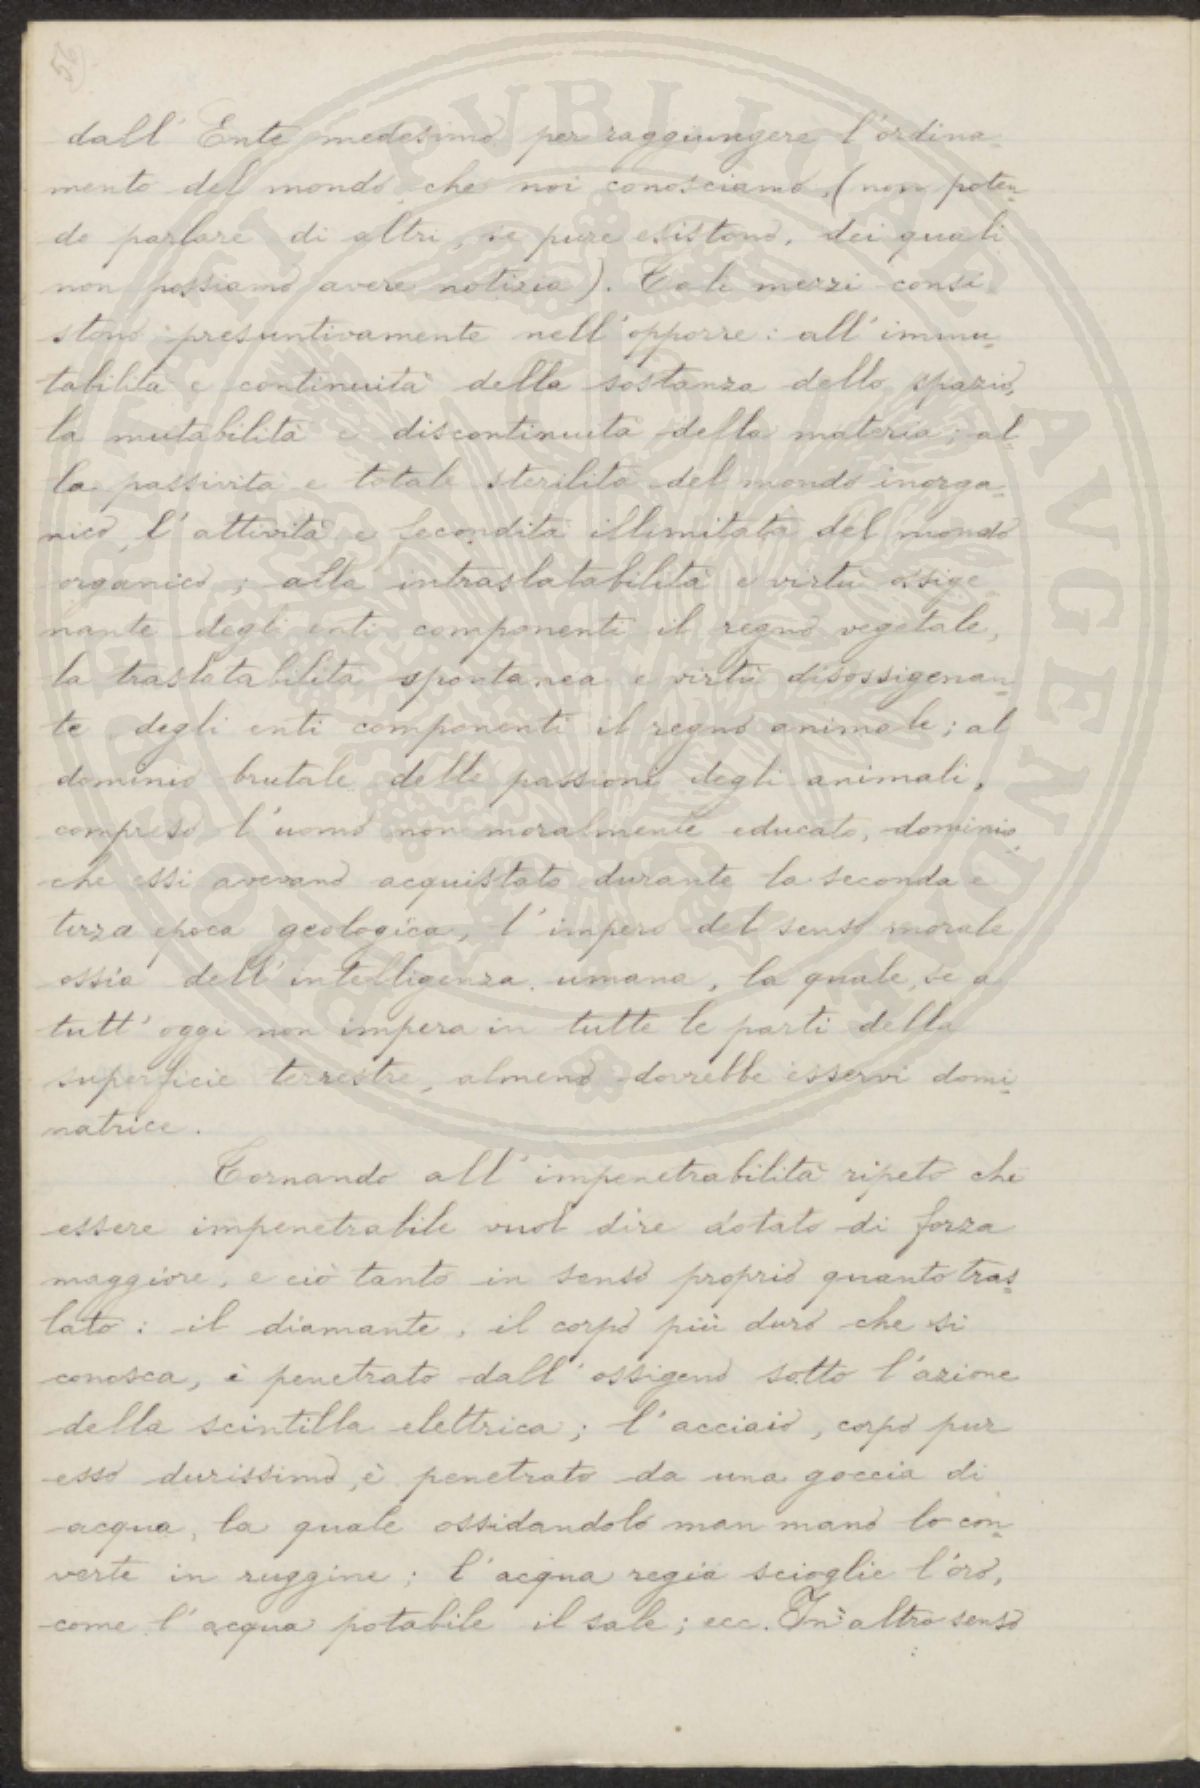 56
dall' Ente medesimo per raggiungere l'ordina-
mento del mondo che noi conosciamo, (non poten-
do parlare di altri, se pure esistono, dei quali
non possiamo avere notizia). Tali mezzi consi-
stono presuntivamente nell'opporre: all'immu-
tabilità e continuità della sostanza dello spazio,
la mutabilità e discontinuità della materia; al-
la passività e totale sterilità del mondo inorga-
nico, l'attività e fecondità illimitata del mondo
organico; alla intraslatabilità e virtù ossige-
nante degli enti componenti il regno vegetale,
la traslatabilità spontanea e virtù disossigenan-
te degli enti componenti il regno animale; al
dominio brutale delle passioni degli animali,
compreso l'uomo non moralmente educato, dominio
che essi avevano acquistato durante la seconda e
terza epoca geologica, l'impero del senso morale
ossia dell'intelligenza umana, la quale, se a
tutt'oggi non impera in tutte le parti della
superficie terrestre, almeno dovrebbe esservi domi-
natrice.
Tornando all'impenetrabilità ripeto che
essere impenetrabile vuol dire dotato di forza
maggiore, e ciò tanto in senso proprio quanto tras-
lato: il diamante, il corpo più duro che si
conosca, è penetrato dall'ossigeno sotto l'azione
della scintilla elettrica; l'acciaio, corpo pur
esso durissimo, è penetrato da una goccia di
acqua, la quale ossidandolo man mano lo con-
verte in ruggine; l'acqua regia scioglie l'oro,
come l'acqua potabile il sale; ecc. In altro senso
PUBLICAE AUGENDAE